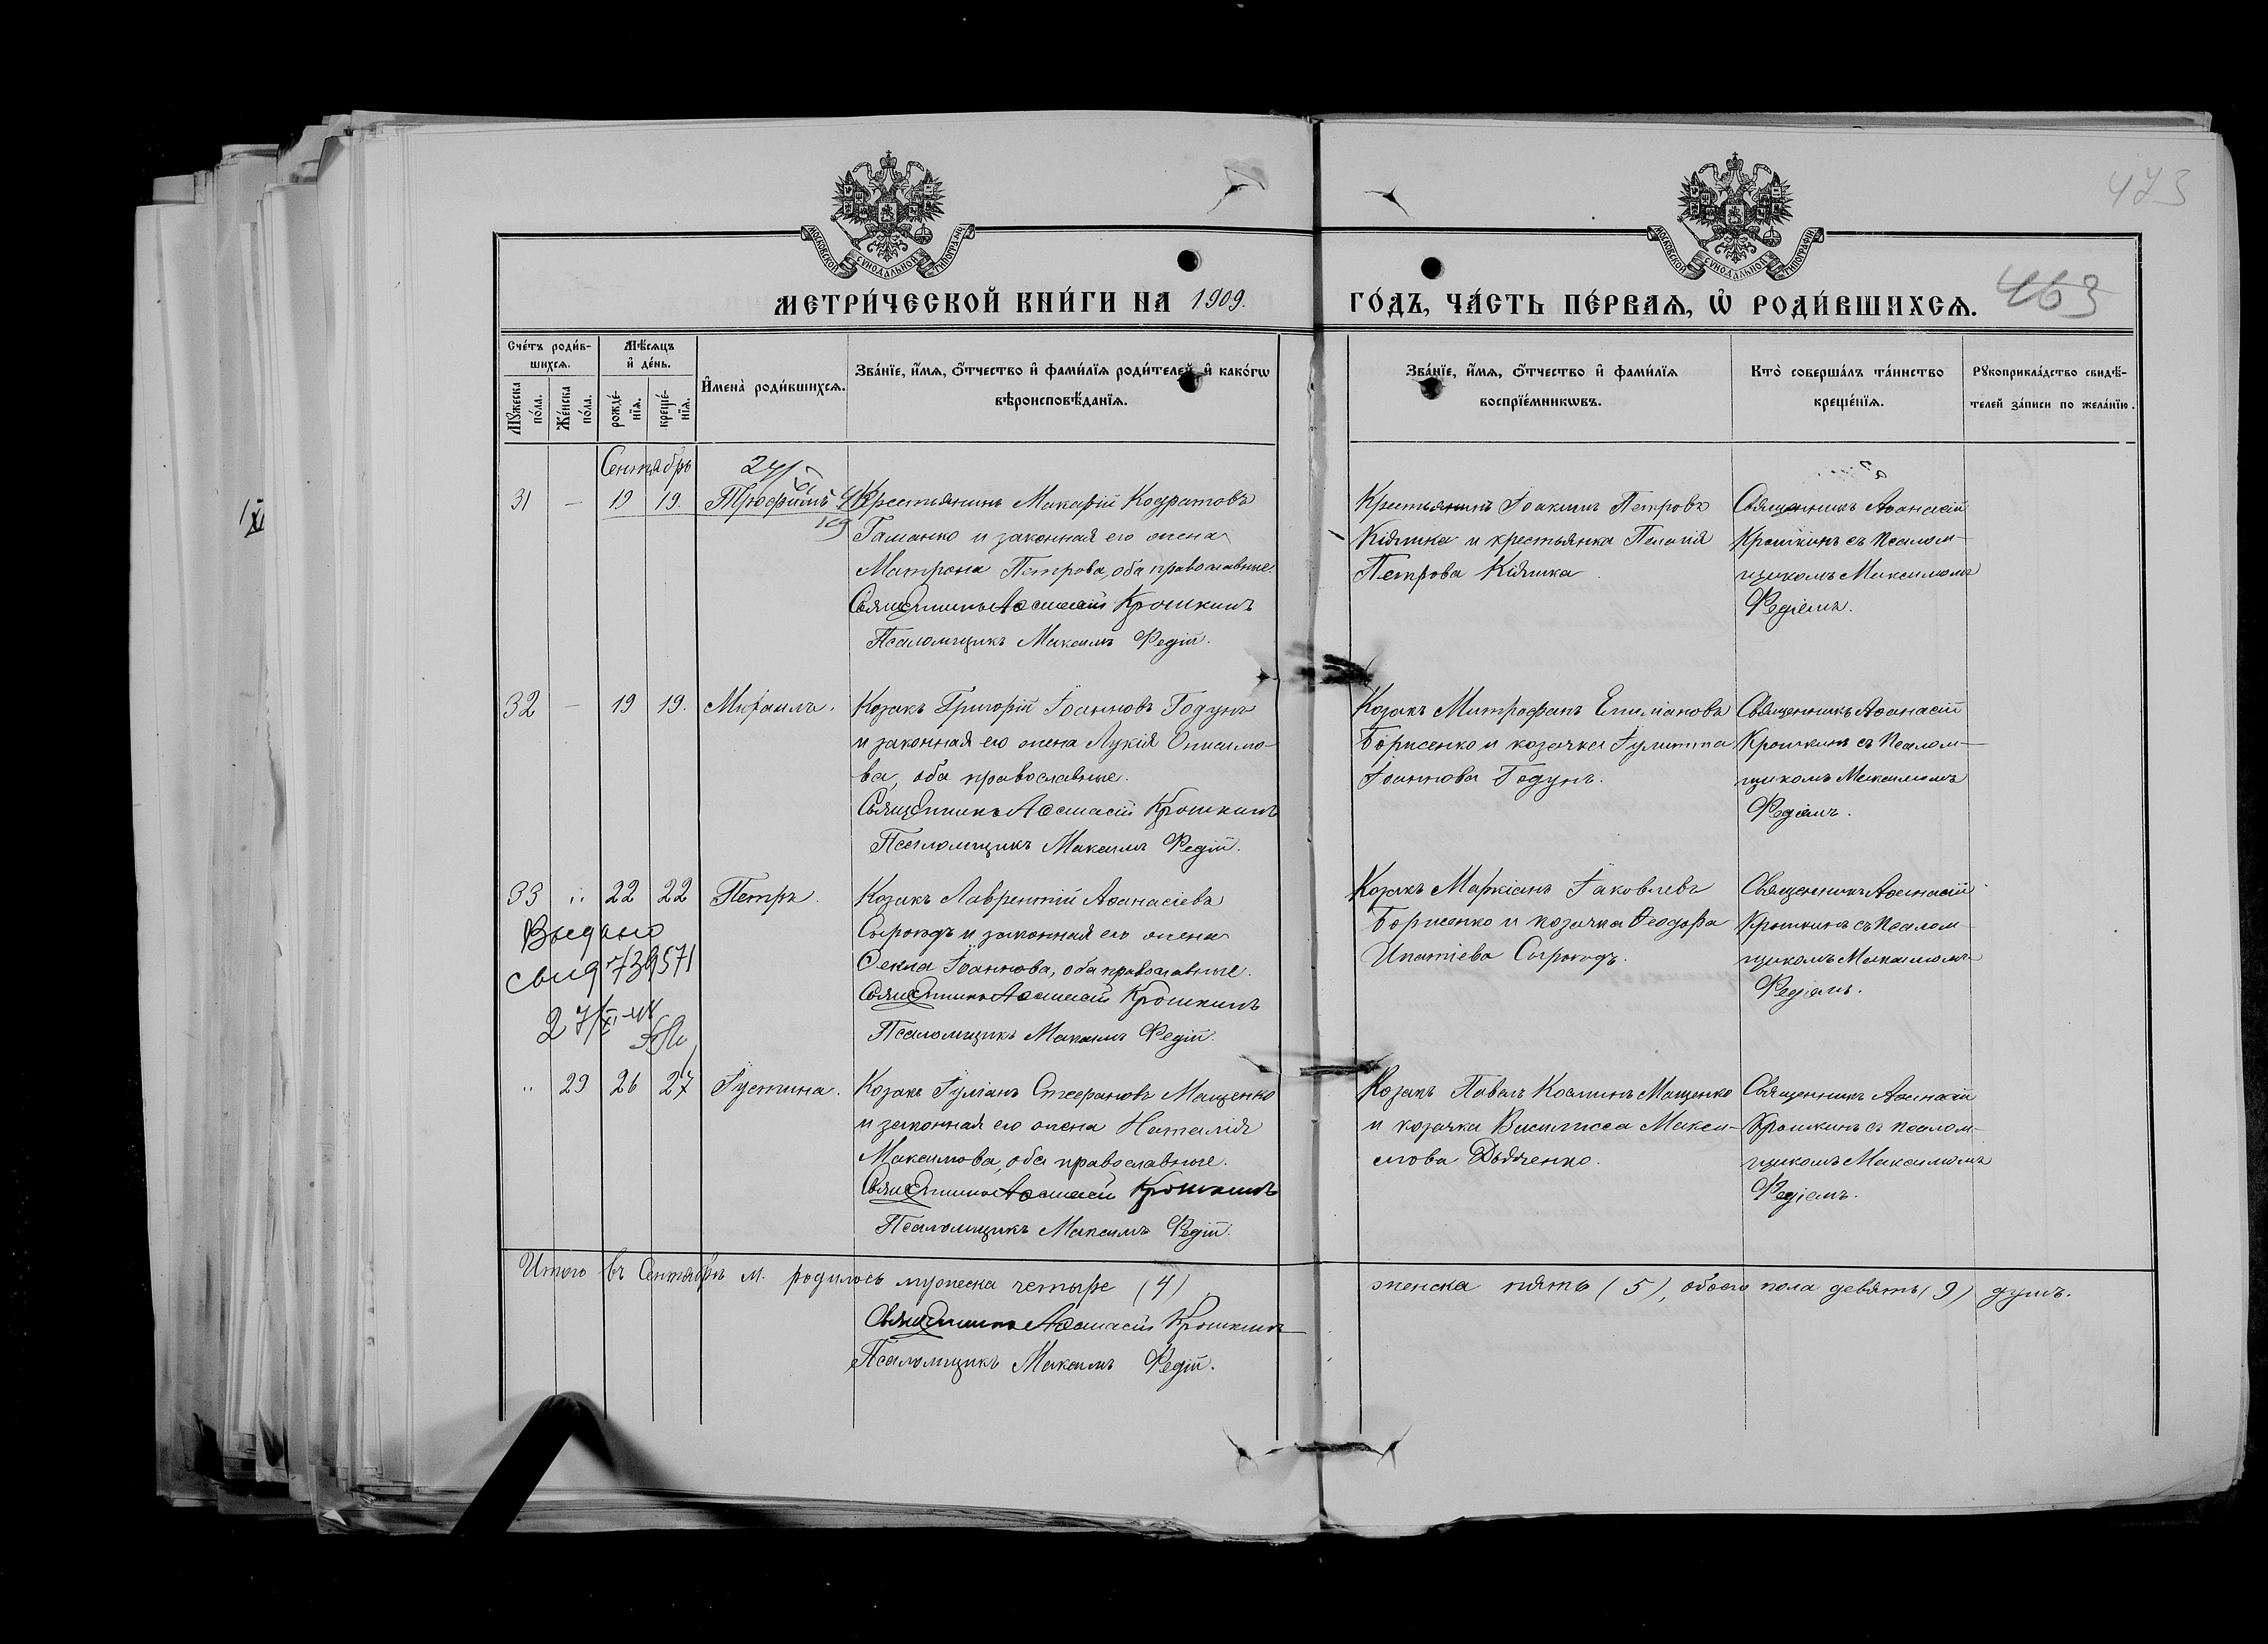 473
МОСКОВСКОЙ СУНОДАЛЬНОЙ ТИПОГРАФІИ
МОСКОВСКОЙ СУНОДАЛЬНОЙ ТИПОГРАФІИ
МЕТРИ́ЧЕСКОЙ КНИ́ГИ НА 1909.
ГО́ДЪ, ЧА́СТЬ ПЕ́РВАѦ, Ѡ҆ РОДИ́ВШИХСѦ.
463
Сче́тъ роди́в-
шихсѧ.
Мѣ́сѧцъ
и҆ де́нь.
Мꙋ́жеска
по́ла.
Же́нска
по́ла.
рожде́-
нїѧ.
креще́-
нїѧ.
И҆мена̀ роди́вшихсѧ.
Зва́нїе, и҆́мѧ, ѻ҆́тчество и҆ фами́лїѧ роди́телей, и҆ како́гѡ
вѣроисповѣ́данїѧ.
Зва́нїе, и҆́мѧ, ѻ҆́тчество и҆ фами́лїѧ
воспрїе́мникѡвъ.
Кто̀ соверша́лъ та́инство
креще́нїѧ.
Рꙋкоприкла́дство свидѣ́-
телей за́писи по жела́нїю.
Сентябрь
31 — 19 19. Трофимъ
Крестьянинъ Макарій Кодратовъ
Гаманко и законная его жена
Матрона Петрова, оба православные.
Священникъ Аѳанасій Крошкинъ
Псаломщикъ Максимъ Редій.
Крестьянинъ Іоакимъ Петровъ
Кіяшка и крестьянка Пелагія
Петрова Кіяшка
Священникъ Аѳанасій
Крошкинъ съ псалом-
щикомъ Максимомъ
Редіемъ.
32 — 19 19. Михаилъ.
Козакъ Григорій Іоанновъ Годунъ
и законная его жена Лукія Онисимо-
ва, оба православные.
Священникъ Аѳанасій Крошкинъ
Псаломщикъ Максимъ Редій.
Козакъ Митрофанъ Епимаховъ
Борисенко и козачка Іулитта
Іоаннова Годунъ.
Священникъ Аѳанасій
Крошкинъ съ псалом-
щикомъ Максимомъ
Редіемъ.
33 " 22 22 Петръ.
Козакъ Лаврентій Аѳанасіевъ
Сыроѣдъ и законная его жена
Ѳекла Іоаннова, оба православные.
Священникъ Аѳанасій Крошкинъ
Псаломщикъ Максимъ Редій.
Козакъ Маркіанъ Іаковлевъ
Борисенко и козачка Ѳеодора
Ипатіева Сыроѣдъ.
Священникъ Аѳанасій
Крошкинъ съ псалом-
щикомъ Максимомъ
Редіемъ.
Выдано
свид 739571
27/XI-48
" 29 26 27 Іустина.
Козакъ Іуліанъ Стефановъ Мащенко
и законная его жена Наталія
Максимова, оба православные.
Священникъ Аѳанасій Крошкинъ
Псаломщикъ Максимъ Редій.
Козакъ Павелъ Косминъ Мащенко
и козачка Василисса Макси-
мова Дьяченко.
Священникъ Аѳанасій
Крошкинъ съ псалом-
щикомъ Максимомъ
Редіемъ.
Итого въ Сентябрѣ м. родилось мужеска четыре (4)
женска пять (5), обоего пола девять (9) душъ.
Священникъ Аѳанасій Крошкинъ
Псаломщикъ Максимъ Редій.